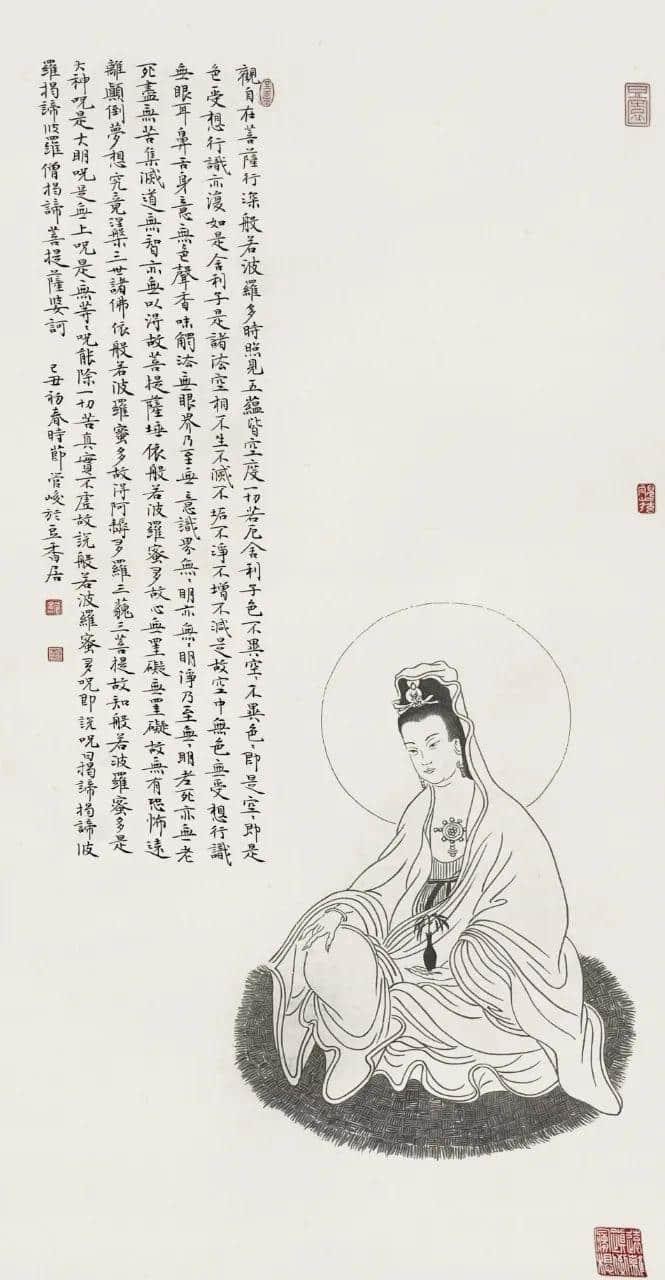 觀自在菩薩行深般若波羅多時照見五蘊皆空度一切苦厄舍利子色不異空、不異色、即是空、即是
色受想行識亦復如是舍利子是諸法空相不生不滅不垢不淨不增不減是故空中無色無受想行識
無眼耳鼻舌身意無色聲香味觸法無眼界乃至無意識界無、明亦無、明淨乃至無、明老死亦無老
死盡無苦集滅道無智亦無以得故菩提薩埵依般若波羅蜜多故心無罣礙無罣礙故無有恐怖遠
離顛倒夢想究竟涅槃三世諸佛依般若波羅蜜多故得阿耨多羅三藐三菩提故知般若波羅蜜多是
大神咒是大明咒是無上咒是無等、咒能除一切苦真實不虛故說般若波羅蜜多咒即說咒曰揭諦揭諦波
羅揭諦波羅僧揭諦菩提薩婆訶 己丑初春時節管峻於豆香居